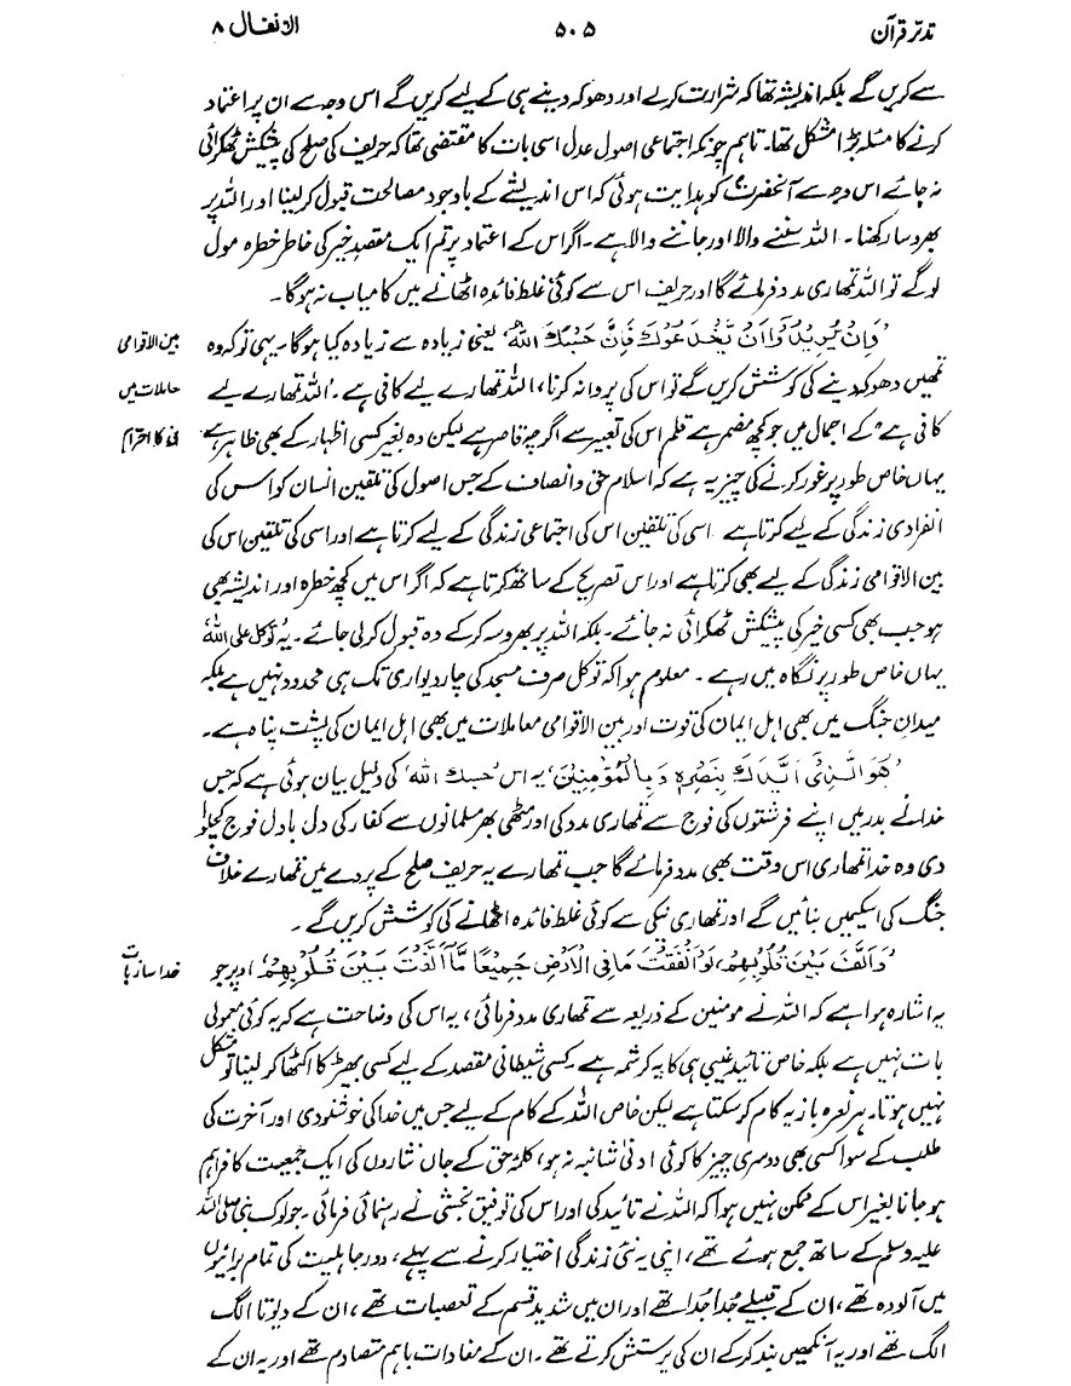 تدبّر قرآن ۵۰۵ الانفال ۸
سے کریں گے بلکہ اندیشہ تھا کہ شرارت کرنے اور دھوکہ دینے ہی کے لیے کریں گے اس وجہ سے ان پر اعتماد
کرنے کا مسئلہ بڑا مشکل تھا۔ تاہم چونکہ اجتماعی اصول عدل اسی بات کا مقتضی تھا کہ حریف کی صلح کی پیشکش ٹھکرائی
نہ جائے اس وجہ سے آنحضرتؐ کو ہدایت ہوئی کہ اس اندیشے کے باوجود مصالحت قبول کر لینا اور اللہ پر
بھروسا رکھنا۔ اللہ سننے والا اور جاننے والا ہے۔ اگر اس کے اعتماد پر تم ایک مقصدِ خیر کی خاطر خطرہ مول
لو گے تو اللہ تمھاری مدد فرمائے گا اور حریف اس سے کوئی غلط فائدہ اٹھانے میں کامیاب نہ ہوگا۔
’وَاِنْ یُّرِیْدُوْٓا اَنْ یَّخْدَعُوْکَ فَاِنَّ حَسْبَکَ اللّٰہُ‘ یعنی زیادہ سے زیادہ کیا ہوگا۔ یہی تو کہ وہ
بین الاقوامی
تمھیں دھوکہ دینے کی کوشش کریں گے تو اس کی پروا نہ کرنا، اللہ تمھارے لیے کافی ہے۔ ’اللہ تمھارے لیے
معاملات میں
کافی ہے‘ کے اجمال میں جو کچھ مضمر ہے قلم اس کی تعبیر سے اگرچہ قاصر ہے لیکن وہ بغیر کسی اظہار کے بھی ظاہر ہے۔
کا احترام
یہاں خاص طور پر غور کرنے کی چیز یہ ہے کہ اسلام حق و انصاف کے جس اصول کی تلقین انسان کو اس کی
انفرادی زندگی کے لیے کرتا ہے اسی کی تلقین اس کی اجتماعی زندگی کے لیے کرتا ہے اور اسی کی تلقین اس کی
بین الاقوامی زندگی کے لیے بھی کرتا ہے اور اس تصریح کے ساتھ کرتا ہے کہ اگر اس میں کچھ خطرہ اور اندیشہ بھی
ہو جب بھی کسی خیر کی پیشکش ٹھکرائی نہ جائے۔ بلکہ اللہ پر بھروسہ کرکے وہ قبول کر لی جائے۔ یہ ’توکل علی اللہ‘
یہاں خاص طور پر نگاہ میں رہے۔ معلوم ہوا کہ توکل صرف مسجد کی چار دیواری تک ہی محدود نہیں ہے بلکہ
میدان جنگ میں بھی اہل ایمان کی قوت اور بین الاقوامی معاملات میں بھی اہل ایمان کی پشت پناہ ہے۔
’ھُوَ الَّذِیْٓ اَیَّدَکَ بِنَصْرِہٖ وَ بِالْمُؤْمِنِیْنَ‘ یہ اس ’حسبک اللہ‘ کی دلیل بیان ہوئی ہے کہ جس
خدا نے بدر میں اپنے فرشتوں کی فوج سے تمھاری مدد کی اور مٹھی بھر مسلمانوں سے کفار کی دل بادل فوج کچلوا
دی وہ خدا تمھاری اس وقت بھی مدد فرمائے گا جب تمھارے یہ حریف صلح کے پردے میں تمھارے خلاف
جنگ کی اسکیمیں بنائیں گے اور تمھاری نیکی سے کوئی غلط فائدہ اٹھانے کی کوشش کریں گے۔
’وَاَلَّفَ بَیْنَ قُلُوْبِھِمْ، لَوْ اَنْفَقْتَ مَا فِی الْاَرْضِ جَمِیْعًا مَّآ اَلَّفْتَ بَیْنَ قُلُوْبِھِمْ‘ اوپر جو
خدا ساز بات
یہ اشارہ ہوا ہے کہ اللہ نے مومنین کے ذریعہ سے تمھاری مدد فرمائی، یہ اس کی وضاحت ہے کہ یہ کوئی معمولی
بات نہیں ہے بلکہ خاص تائید غیبی ہی کا یہ کرشمہ ہے۔ کسی شیطانی مقصد کے لیے کسی بھیڑ کا اکٹھا کر لینا تو مشکل
نہیں ہوتا۔ ہر نعرہ باز یہ کام کر سکتا ہے لیکن خاص اللہ کے کام کے لیے جس میں خدا کی خوشنودی اور آخرت کی
طلب کے سوا کسی بھی دوسری چیز کا کوئی ادنیٰ شائبہ نہ ہو، کلمۂ حق کے جاں نثاروں کی ایک جمعیت کا فراہم
ہو جانا بغیر اس کے ممکن نہیں ہوا کہ اللہ نے تائید کی اور اس کی توفیق بخشی نے رہنمائی فرمائی۔ جو لوگ نبی صلی اللہ
علیہ وسلم کے ساتھ جمع ہوئے تھے، اپنی یہ نئی زندگی اختیار کرنے سے پہلے، دور جاہلیت کی تمام برائیوں
میں آلودہ تھے، ان کے قبیلے جُدا جُدا تھے اور ان میں شدید قسم کے تعصبات تھے، ان کے دیوتا الگ
الگ تھے اور یہ آنکھیں بند کرکے ان کی پرستش کرتے تھے۔ ان کے مفادات باہم متصادم تھے اور یہ ان کے